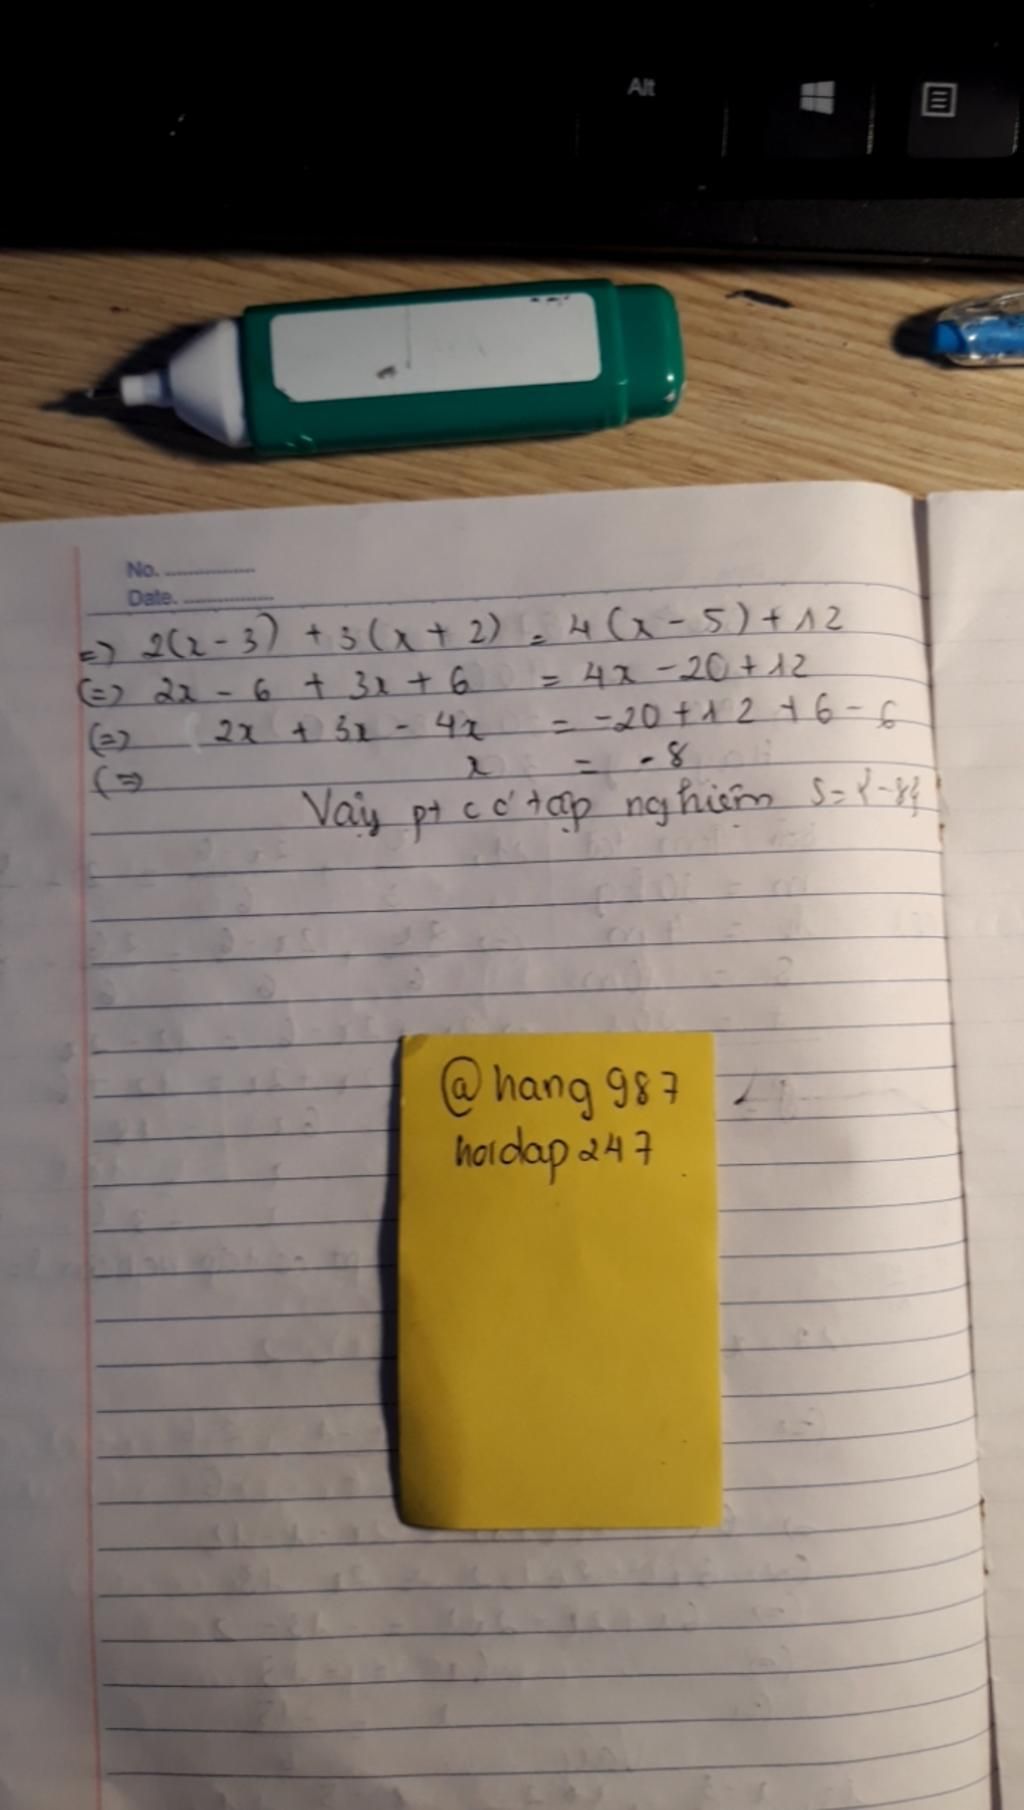 Alt
No. ................
Date. ................
=> 2(x - 3) + 3(x + 2) = 4(x - 5) + 12
(=> 2x - 6 + 3x + 6 = 4x - 20 + 12
(=> 2x + 3x - 4x = -20 + 12 + 6 - 6
(=> x = -8
Vậy pt có tập nghiệm S = {-8}
@hang987
hoidap247